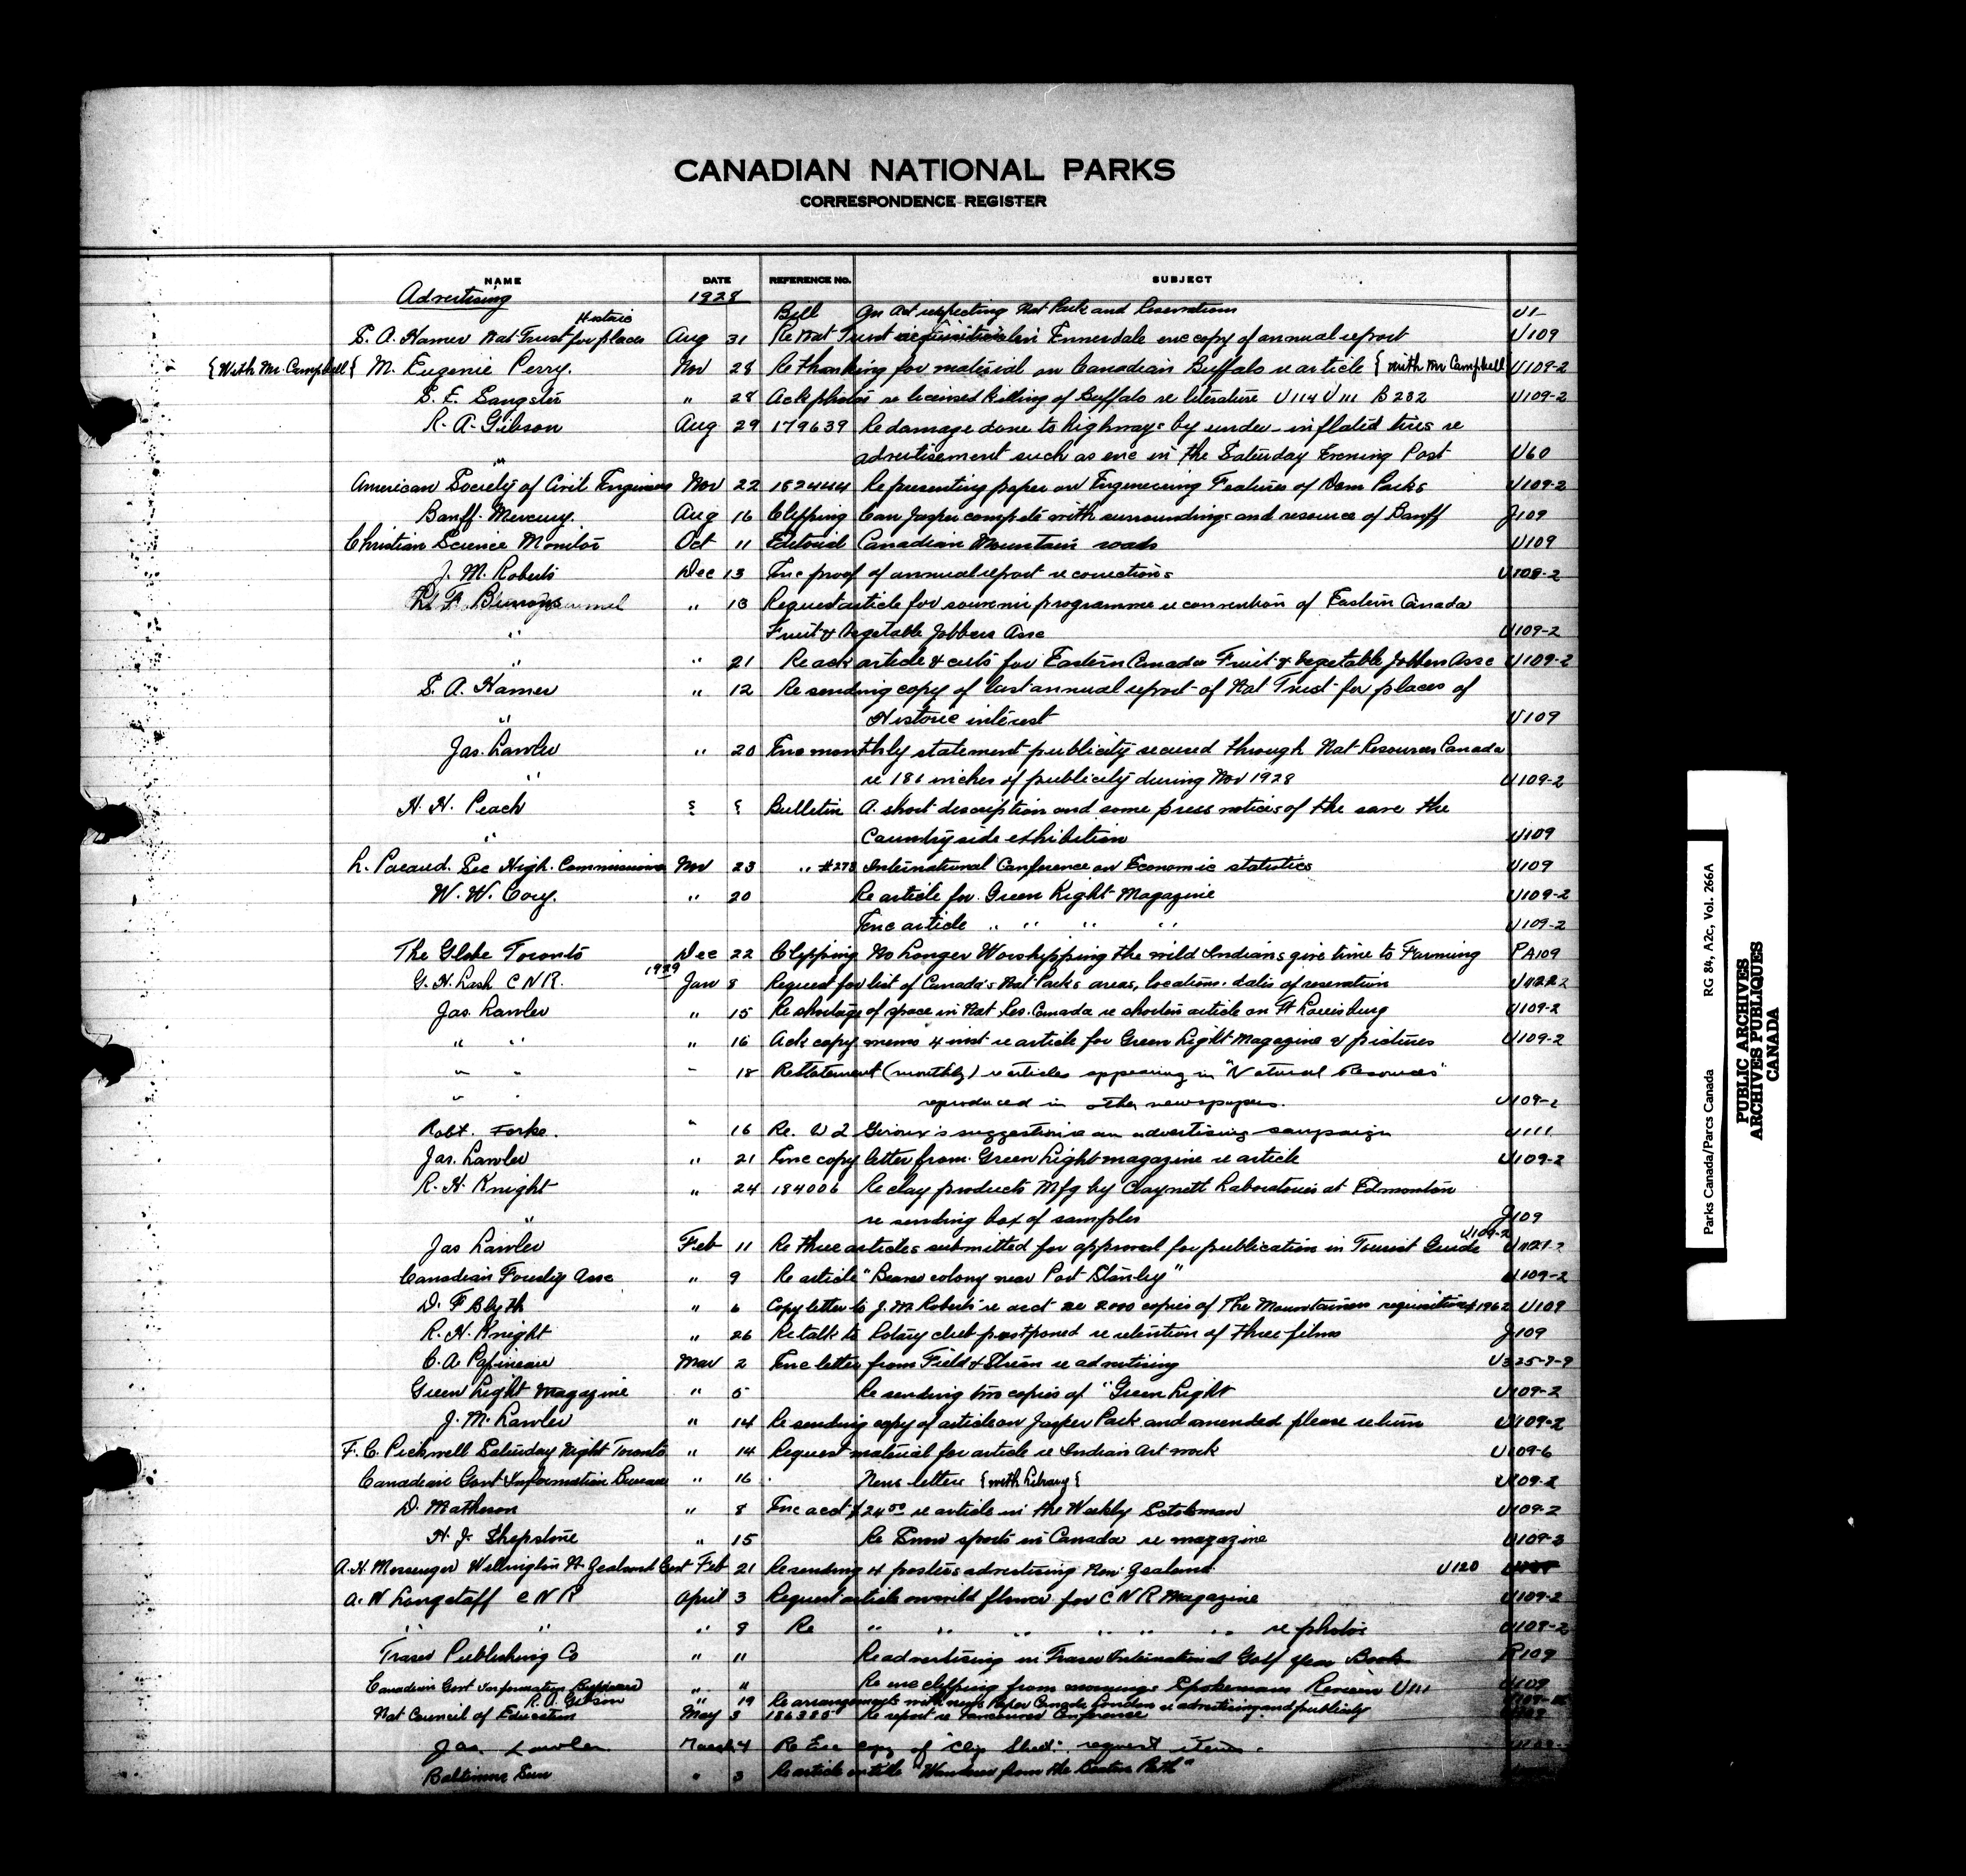 CANADIAN NATIONAL PARKS
CORRESPONDENCE REGISTER
NAME DATE REFERENCE NO. SUBJECT
Advertising 1928
Bill An Act respecting Nat Park and Reservations U1
S. A. Hamer Nat Trust for Historic places Aug 31 Re Nat Trust acquisition in Ennerdale enc copy of annual report U109
{With Mr. Campbell{ M. Eugenie Perry. Nov 28 Re thanking for material on Canadian Buffalo re article {with Mr Campbell U109-2
S. E. Sangster " 28 Ack photos re licensed killing of Buffalo re literature U114 U111 B232 U109-2
R. A. Gibson Aug 29 179639 Re damage done to highways by under-inflated tires re
" advertisement such as enc in the Saturday Evening Post U60
American Society of Civil Engineers Nov 22 182444 Re presenting paper on Engineering Features of Dom Parks U109-2
Banff Mercury. Aug 16 Clipping Can Jasper compete with surroundings and resource of Banff J109
Christian Science Monitor Oct 11 Editorial Canadian Mountain roads U109
J. M. Roberts Dec 13 Enc proof of annual report re corrections U109-2
Burrows " 13 Request article for souvenir programme re convention of Eastern Canada
" Fruit & Vegetable Jobbers Assc U109-2
" " 21 Re ack article & cuts for Eastern Canada Fruit & Vegetable Jobbers Assc U109-2
S. A. Hamer " 12 Re sending copy of last annual report of Nat Trust for places of
" Historic interest U109
Jas. Lawler " 20 Enc monthly statement publicity secured through Nat Resources Canada
" re 186 inches of publicity during Nov 1928 U109-2
H. H. Peach ? ? Bulletin A short description and some press notices of the save the
" Countryside exhibition U109
L. Pacaud. Sec High. Commissioner Nov 23 " #273 International Conference on Economic statistics U109
W. W. Cory. " 20 Re article for Green Light Magazine U109-2
Enc article " " " " U109-2
The Globe Toronto Dec 22 Clipping No Longer Worshipping the wild Indians give time to Farming PA109
G. H. Lash C N R. 1929 Jan 8 Request for list of Canada's Nat Parks areas, locations, dates of reservation
Jas. Lawler " 15 Re shortage of space in Nat. Res. Canada re shorten article on Ft Louisburg U109-2
" " " 16 Ack copy memo 4 inst re article for Green Light Magazine & pictures U109-2
" " " 18 Re Statement (monthly) re articles appearing in "Natural Resources"
" " reproduced in other newspapers. U109-2
Robt. Forke. " 16 Re. Giroux's suggestion re an advertising campaign U111
Jas. Lawler " 21 Enc copy letter from Green Light magazine re article U109-2
R. H. Knight " 24 184006 Re clay products Mfg by Claynett Laboratories at Edmonton
" re sending box of samples J109
Jas Lawler Feb 11 Re three articles submitted for approval for publication in Tourist Guide U109-2
Canadian Forestry Assc " 9 Re article "Beaver colony near Port Stanley" U109-2
D. F Blyth " 6 Copy letter to J. M. Roberts re acct re 2000 copies of The Mountaineers requisition #1962 U109
R. H. Knight " 26 Re talk to Rotary club postponed re retention of three films J109
C. A. Papineau Mar 2 Enc letter from Field & Stream re advertising U325-7-9
Green Light Magazine " 5 Re sending two copies of "Green Light U109-2
J. M. Lawler " 14 Re sending copy of article on Jasper Park and amended please return U109-2
F. C. Pickwell Saturday Night Toronto " 14 Request material for article re Indian Art work U109-6
Canadian Govt Information Bureau " 16 News letter {with Library{ U109-2
D. Matheson " 8 Enc acct $24.00 re article in the Weekly Scotsman U109-2
H. J. Shepstone " 15 Re Snow sports in Canada re magazine U109-3
A. H. Messenger Wellington N. Zealand Govt Feb 21 Re sending 4 posters advertising New Zealand U120
A. N Longstaff C N R April 3 Request article on wild flower for C N R Magazine U109-2
" " " 9 Re " " " " " " re photos U109-2
Fraser Publishing Co " 11 Re advertising in Fraser International Golf Year Book R109
Canadian Govt Information Bureau " 11 Re enc clipping from morning Spokesman Review U111 U109
R. A. Gibson " 19 Re arrangements with news Paper Canada London re advertising and publicity
Nat Council of Education May 3 186385 Re report re Vancouver Conference
Jas. Lawler March 4 Re Enc copy of "Clip Sheet" request items.
Baltimore Sun " 3 Re article entitle "Wander from the Beaten Path"
Parks Canada/Parcs Canada RG 84, A2c, Vol. 266A
PUBLIC ARCHIVES
ARCHIVES PUBLIQUES
CANADA